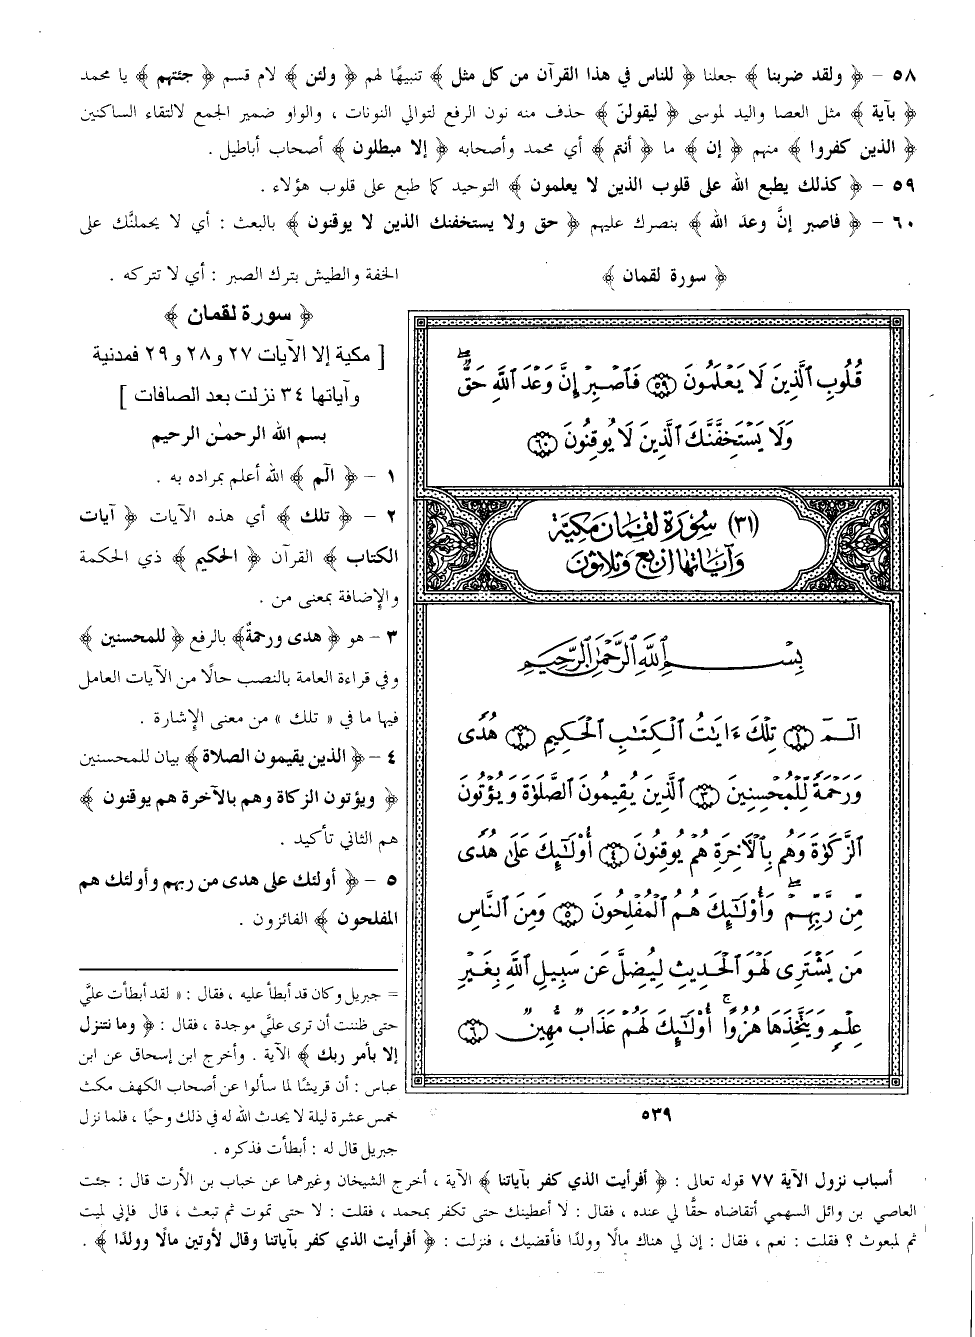 ٥٨ – ﴿ ولقد ضربنا ﴾ جعلنا ﴿ للناس في هذا القرآن من كل مثل ﴾ تنبيهًا لهم ﴿ ولئن ﴾ لام قسم ﴿ جئتهم ﴾ يا محمد
﴿ بآية ﴾ مثل العصا واليد لموسى ﴿ ليقولنّ ﴾ حذف منه نون الرفع لتوالي النونات ، والواو ضمير الجمع لالتقاء الساكنين
﴿ الذين كفروا ﴾ منهم ﴿ إن ﴾ ما ﴿ أنتم ﴾ أي محمد وأصحابه ﴿ إلا مبطلون ﴾ أصحاب أباطيل .
٥٩ – ﴿ كذلك يطبع الله على قلوب الذين لا يعلمون ﴾ التوحيد كما طبع على قلوب هؤلاء .
٦٠ – ﴿ فاصبر إنَّ وعدَ الله ﴾ بنصرك عليهم ﴿ حق ولا يستخفنك الذين لا يوقنون ﴾ بالبعث : أي لا يحملنَّك على
الخفة والطيش بترك الصبر : أي لا تتركه .
﴿ سورة لقمان ﴾
﴿ سورة لقمان ﴾
[ مكية إلا الآيات ٢٧ و ٢٨ و ٢٩ فمدنية
وآياتها ٣٤ نزلت بعد الصافات ]
بسم الله الرحمٰن الرحيم
١ – ﴿ الٓم ﴾ الله أعلم بمراده به .
٢ – ﴿ تلك ﴾ أي هذه الآيات ﴿ آيات
الكتاب ﴾ القرآن ﴿ الحكيم ﴾ ذي الحكمة
والإضافة بمعنى من .
٣ – هو ﴿ هدى ورحمةٌ﴾ بالرفع ﴿ للمحسنين ﴾
وفي قراءة العامة بالنصب حالًا من الآيات العامل
فيها ما في « تلك » من معنى الإشارة .
٤ – ﴿ الذين يقيمون الصلاة ﴾ بيان للمحسنين
﴿ ويؤتون الزكاة وهم بالآخرة هم يوقنون ﴾
هم الثاني تأكيد .
٥ – ﴿ أولئك على هدى من ربهم وأولئك هم
المفلحون ﴾ الفائزون .
قُلُوبِ ٱلَّذِينَ لَا يَعْلَمُونَ ٥٩ فَٱصْبِرْ إِنَّ وَعْدَ ٱللَّهِ حَقٌّۖ
وَلَا يَسْتَخِفَّنَّكَ ٱلَّذِينَ لَا يُوقِنُونَ ٦٠
(٣١) سُورَة لقمَان مَكيّة
وَآيَاتهَا أربَع وَثلاثون
بِسْمِ ٱللَّهِ ٱلرَّحْمَٰنِ ٱلرَّحِيمِ
الٓمٓ ١ تِلْكَ ءَايَٰتُ ٱلْكِتَٰبِ ٱلْحَكِيمِ ٢ هُدًى
وَرَحْمَةً لِّلْمُحْسِنِينَ ٣ ٱلَّذِينَ يُقِيمُونَ ٱلصَّلَوٰةَ وَيُؤْتُونَ
ٱلزَّكَوٰةَ وَهُم بِٱلْءَاخِرَةِ هُمْ يُوقِنُونَ ٤ أُو۟لَٰٓئِكَ عَلَىٰ هُدًى
مِّن رَّبِّهِمْۖ وَأُو۟لَٰٓئِكَ هُمُ ٱلْمُفْلِحُونَ ٥ وَمِنَ ٱلنَّاسِ
مَن يَشْتَرِى لَهْوَ ٱلْحَدِيثِ لِيُضِلَّ عَن سَبِيلِ ٱللَّهِ بِغَيْرِ
عِلْمٍ وَيَتَّخِذَهَا هُزُوًاۚ أُو۟لَٰٓئِكَ لَهُمْ عَذَابٌ مُّهِينٌ ٦
٥٣٩
= جبريل وكان قد أبطأ عليه ، فقال : « لقد أبطأت عليَّ
حتى ظننت أن ترى عليَّ موجدة ، فقال : ﴿ وما نتنزل
إلا بأمر ربك ﴾ الآية . وأخرج ابن إسحاق عن ابن
عباس : أن قريشًا لما سألوا عن أصحاب الكهف مكث
خمس عشرة ليلة لا يحدث الله له في ذلك وحيًا ، فلما نزل
جبريل قال له : أبطأت فذكره .
أسباب نزول الآية ٧٧ قوله تعالى : ﴿ أفرأيت الذي كفر بآياتنا ﴾ الآية ، أخرج الشيخان وغيرهما عن خباب بن الأرت قال : جئت
العاصي بن وائل السهمي أتقاضاه حقًا لي عنده ، فقال : لا أعطينك حتى تكفر بمحمد ، فقلت : لا حتى تموت ثم تبعث ، قال فإني لميت
ثم لمبعوث ؟ فقلت : نعم ، فقال : إن لي هناك مالًا وولدًا فأقضيك ، فنزلت : ﴿ أفرأيت الذي كفر بآياتنا وقال لأوتين مالًا وولدًا ﴾ .